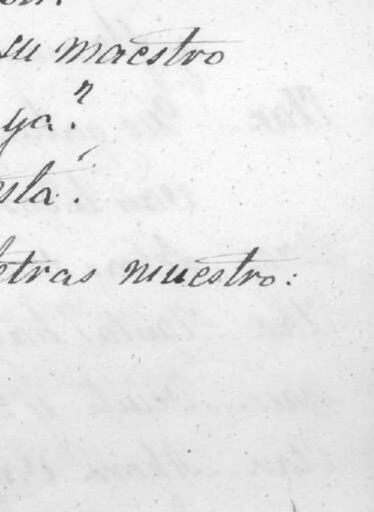 su maestro
ya."
sla.
etras muestro: